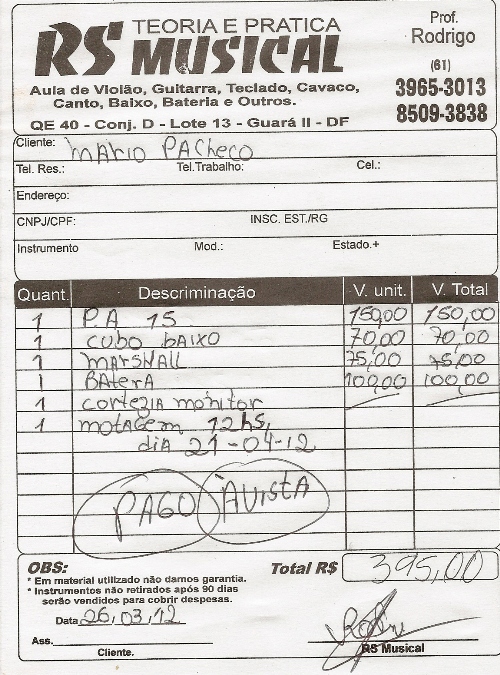 TEORIA E PRATICA
RS MUSICAL
Prof.
Rodrigo
(61)
3965-3013
8509-3838
Aula de Violão, Guitarra, Teclado, Cavaco,
Canto, Baixo, Bateria e Outros.
QE 40 - Conj. D - Lote 13 - Guará II - DF
Cliente: MARIO PACHECO
Tel. Res.: Tel.Trabalho: Cel.:
Endereço:
CNPJ/CPF: INSC. EST./RG
Instrumento Mod.: Estado.+
Quant. Descriminação V. unit. V. Total
1 P.A 15 150,00 150,00
1 CUBO BAIXO 70,00 70,00
1 MARSHALL 75,00 75,00
1 BAteRA 100,00 100,00
1 CORteZIA monitor
1 motAgem 12hs,
diA 21-04-12
PAGO ÀVISTA
OBS: Total R$ 395,00
* Em material utilizado não damos garantia.
* Instrumentos não retirados após 90 dias
serão vendidos para cobrir despesas.
Data 26,03,12
Ass.
Cliente.
RS Musical